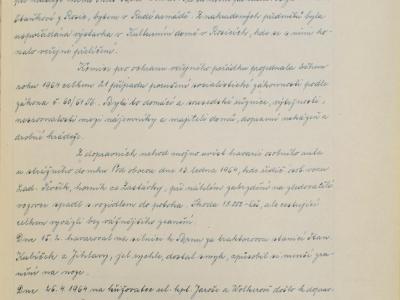 Staníkové z Rosic, bytem v Radě armádě. Z nahraděných předmětů byla
uspořádána výstavka v Kulturním domě v Rosicích, kde se s nimi ko-
nalo veřejné přelíčení.
Komise pro ochranu veřejného pořádku projednala během
roku 1964 celkem 21 případů porušení socialistické zákonnosti podle
zákona č. 60/61 Sb. Byly to domácí a sousedské různice, výtržnosti,
nesrovnalosti mezi nájemníky a majiteli domů, dopravní nekázeň a
drobné krádeže.
Z dopravních nehod možno uvést havarii osobního auta
a strážního domku Pod oborou dne 13. ledna 1964, kde řidič os. vozu
Lad. Kročík, horník ze Zastávky, při náhlém zabrzdění na zledovatělé
vozovce spadl s vozidlem do potoka. Škoda 18.000 Kčs, ale cestující
celkem vyvázli bez vážnějšího zranění.
Dne 15. 2. havaroval na silnici k Brnu za traktorovou stanicí Stan.
Kubíček z Jihlavy, jel rychle, dostal smyk, způsobil si menší zra-
nění na noze.
Dne 26. 4. 1964 na křižovatce ul. kpt. Jaroše a Wolkerovy došlo k dopr-